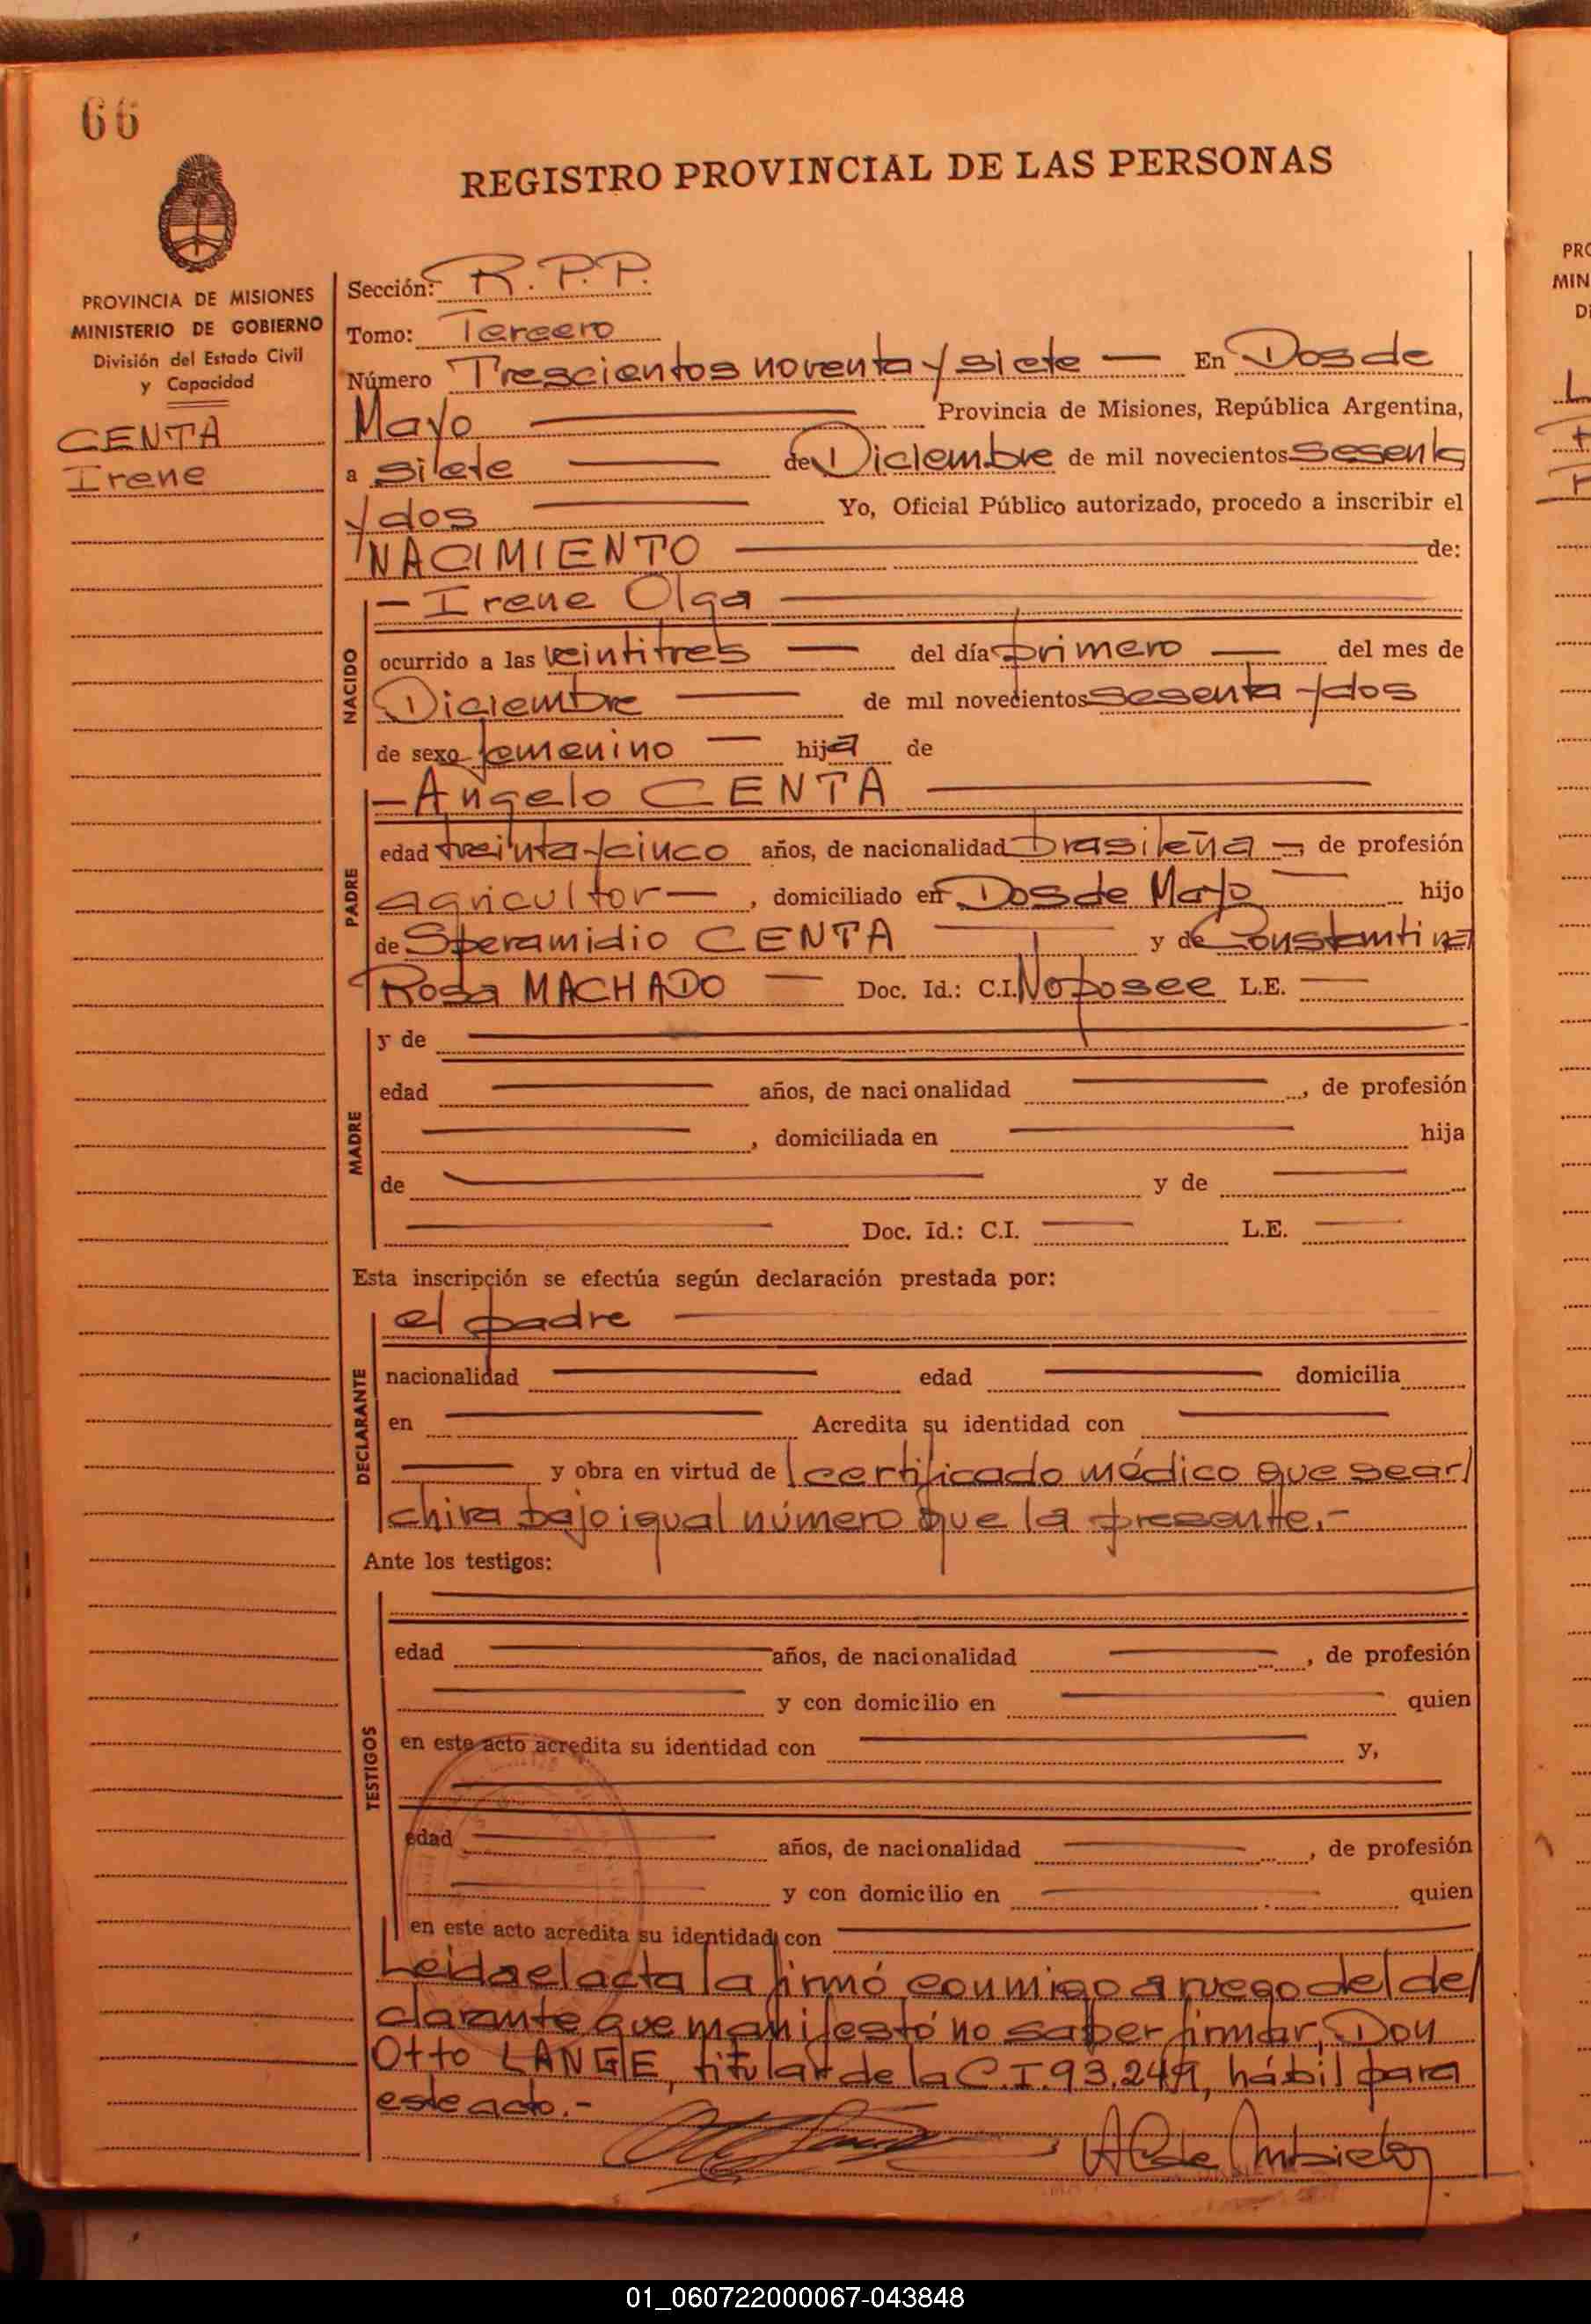 66
REGISTRO PROVINCIAL DE LAS PERSONAS
PROVINCIA DE MISIONES
MINISTERIO DE GOBIERNO
División del Estado Civil
y Capacidad
CENTA
Irene
Sección: R.P.P.
Tomo: Tercero
Número Trescientos noventa y siete — En Dos de
Mayo — Provincia de Misiones, República Argentina,
a siete — de Diciembre de mil novecientos sesenta
y dos — Yo, Oficial Público autorizado, procedo a inscribir el
NACIMIENTO — de:
NACIDO
— Irene Olga —
ocurrido a las veintitres — del día primero — del mes de
Diciembre — de mil novecientos sesenta y dos
de sexo femenino — hija de
PADRE
— Angelo CENTA —
edad treinta y cinco años, de nacionalidad brasileña —, de profesión
agricultor —, domiciliado en Dos de Mayo — hijo
de Speramidio CENTA — y de Constantina
Rosa MACHADO — Doc. Id.: C.I. No posee L.E. —
MADRE
y de —
edad — años, de nacionalidad —, de profesión
—, domiciliada en — hija
de — y de —
— Doc. Id.: C.I. — L.E. —
Esta inscripción se efectúa según declaración prestada por:
DECLARANTE
el padre —
nacionalidad — edad — domicilia
en — Acredita su identidad con —
— y obra en virtud de l certificado médico que se ar/
chiva bajo igual número que la presente.-
Ante los testigos:
TESTIGOS
edad — años, de nacionalidad —, de profesión
— y con domicilio en — quien
en este acto acredita su identidad con — y,
edad — años, de nacionalidad —, de profesión
— y con domicilio en — quien
en este acto acredita su identidad con —
Leida el acta la firmó conmigo a ruego del de/
clarante que manifestó no saber firmar, Don
Otto LANGE, titular de la C.I. 93.249, hábil para
este acto.-
PRO
MIN
Di
01_060722000067-043848